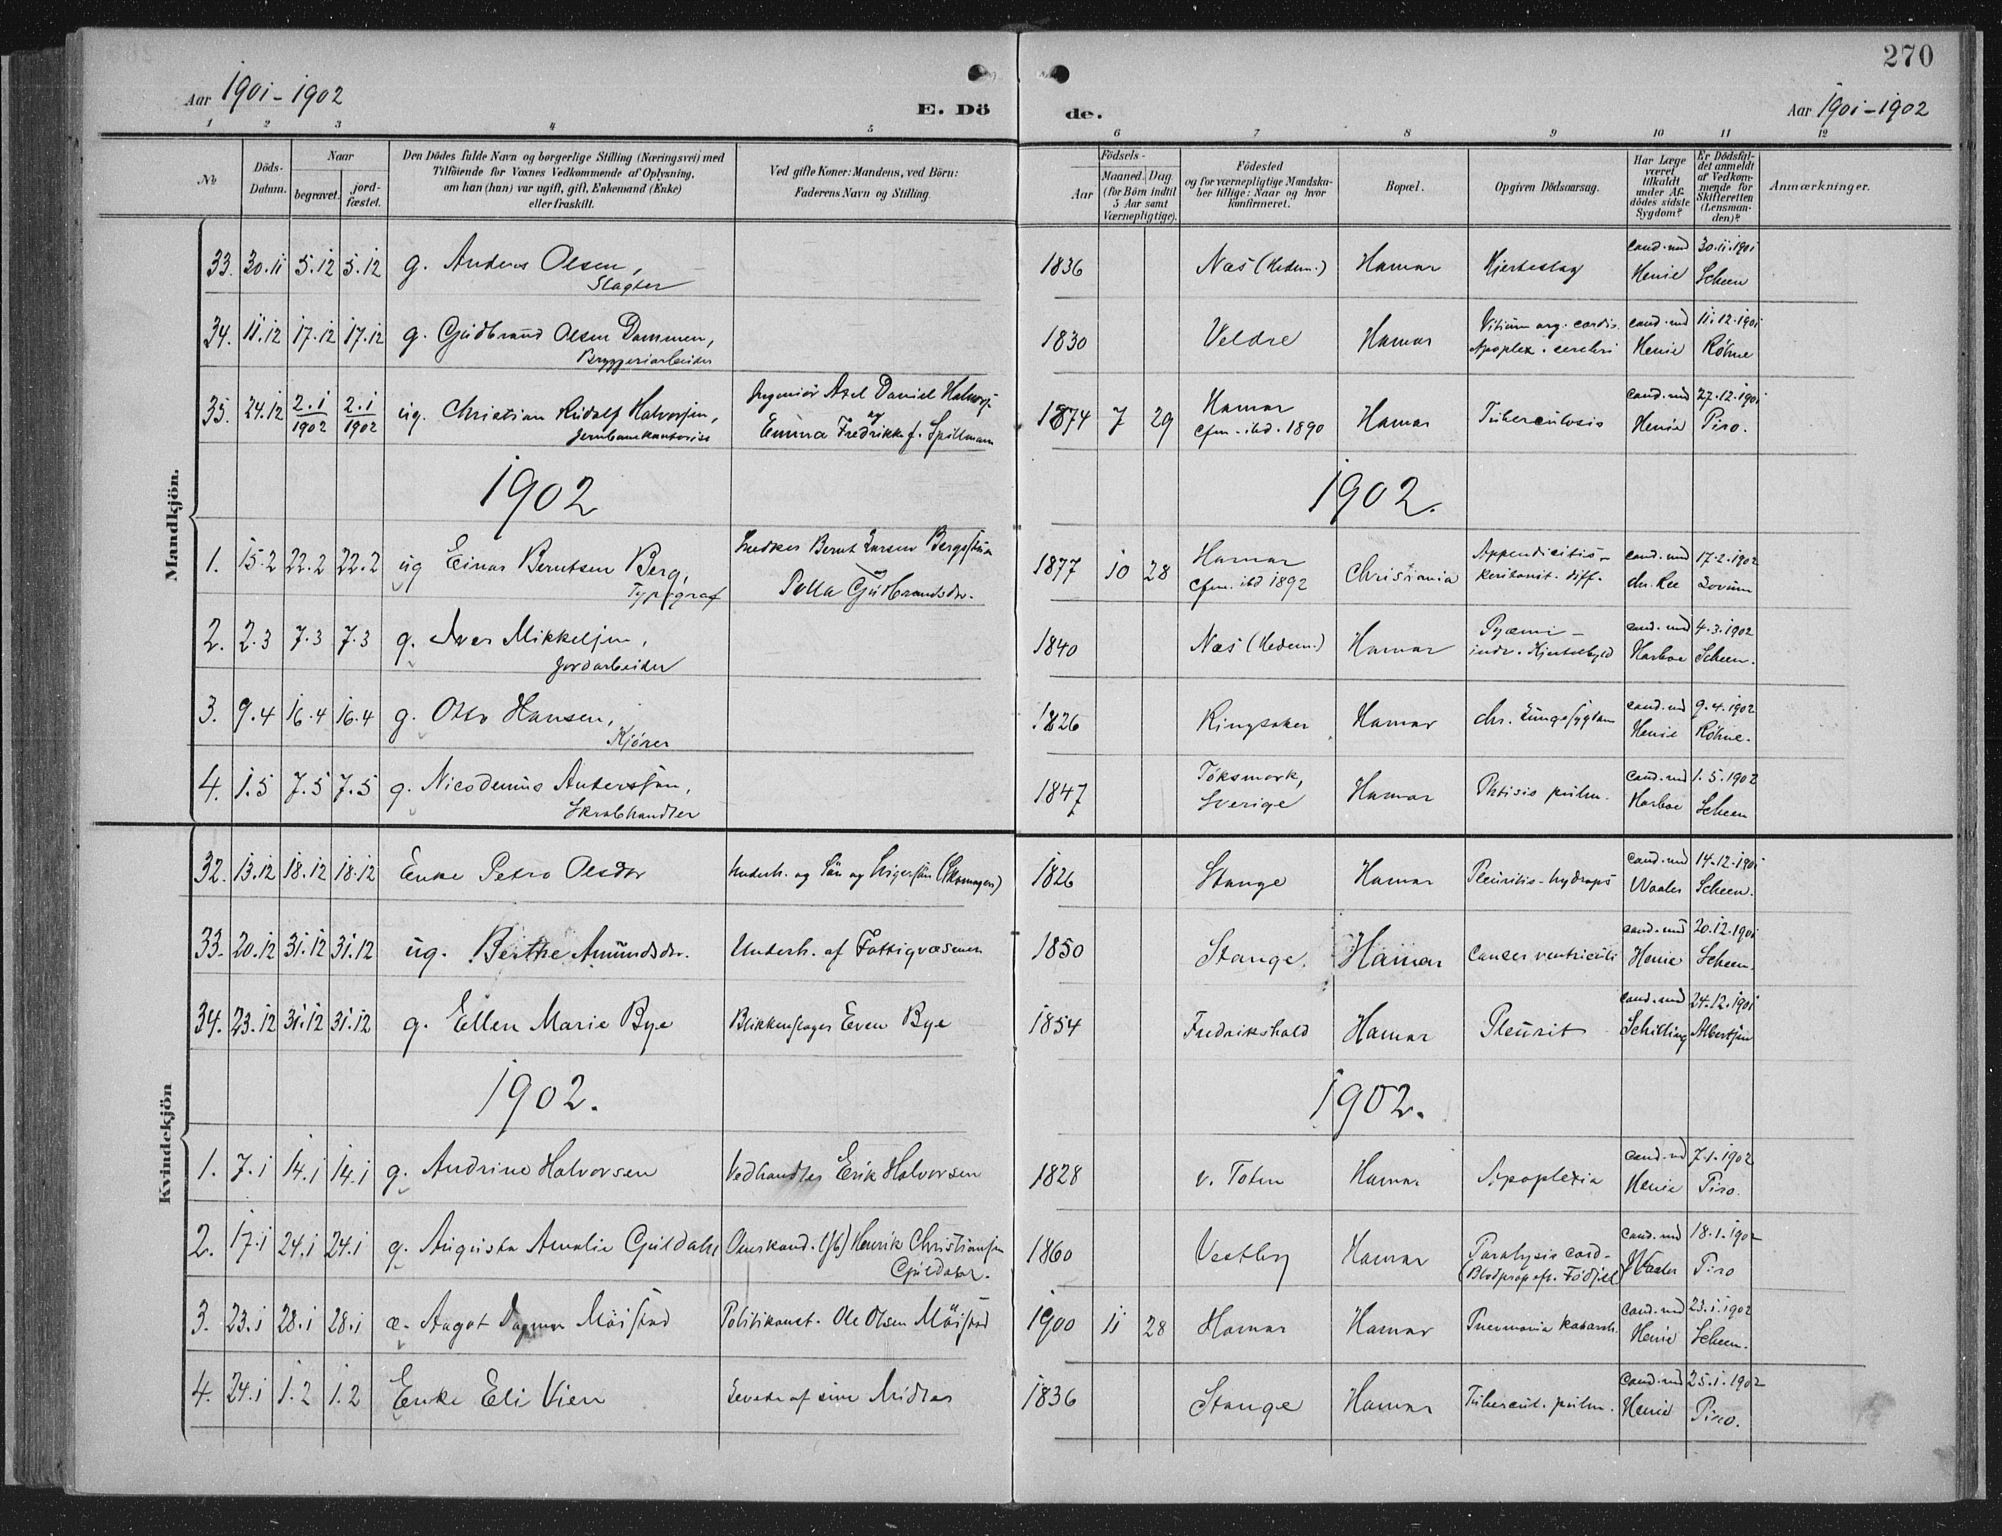 270
Aar 1901-1902
E. Dö
de.
Aar 1901-1902
1 2 3 4 5 6 7 8 9 10 11 12
No
Döds-Datum.
Naar
begravet.
jord-fæstet.
Den Dödes fulde Navn og borgerlige Stilling (Næringsvei) med
Tilföiende for Voxnes Vedkommende af Oplysning,
om han (hun) var ugift, gift, Enkemand (Enke)
eller fraskilt.
Ved gifte Koner: Mandens, ved Börn:
Faderens Navn og Stilling.
Födsels-
Aar
Maaned. Dag.
(for Börn indtil
5 Aar samt
Værnepligtige).
Födested
og for værnepligtige Mandska-
ber tillige: Naar og hvor
konfirmeret.
Bopæl.
Opgiven Dödsaarsag.
Har Læge
været
tilkaldt
under Af-
dödes sidste
Sygdom?
Er Dödsfal-
det anmeldt
af Vedkom-
mende for
Skifteretten
(Lensman-
den)?
Anmærkninger.
Mandkjön.
33. 30.11 5.12 5.12 g. Anders Olsen, 1836 Næs (Hedem.) Hamar Hjerteslag cand. med 30.11.1901
Slagter Henie Scheen
34. 11.12 17.12 17.12 g. Gudbrand Olsen Dammen, 1830 Veldre Hamar Vitium org. cordis. cand. med 11.12.1901
Bryggeriarbeider Apoplex. cerebri Henie Röhne
35. 24.12 2.1 1902 2.1 1902 ug. Christian Rudolf Halvorsen, Ingeniör Axel Daniel Halvors. 1874 7 29 Hamar Hamar Tuberculosis cand. med 27.12.1901
Jernbanekontorist og Emma Fredrikke f. Spillmann Cfm. ibd. 1890 Henie Piro.
1902 1902.
1. 15.2 22.2 22.2 ug Einar Berntsen Berg, Bernt Larsen 1877 10 28 Hamar Christiania Appendicitis- cand. med 17.2.1902
Typograf og Gudbrandsdr. Cfm. ibd 1892 Peritonit. diff. chr. Lovum
2. 2.3 7.3 7.3 g. Iver Mikkelsen, 1840 Næs (Hedem.) Hamar Pyæmi- cand. med 4.3.1902
Jordarbeider Harboe Scheen.
3. 9.4 16.4 16.4 g. Otto Hansen, 1826 Ringsaker Hamar chr. Lungesygdom cand. med 9.4.1902
Kjörer Henie Röhne.
4. 1.5 7.5 7.5 g. Nicodemus Anderssen, 1847 Töksmark, Hamar Phtisis pulm. cand. med 1.5.1902
Skrabhandler Sverige Harboe Scheen
Kvindekjön
32. 13.12 18.12 18.12 Enke Petra Olsdtr Underh. og Sön og Svigersön (Skomager) 1826 Stange Hamar Pleuritis-hydrops cand. med 14.12.1901
Waaler Scheen.
33. 20.12 31.12 31.12 ug. Berthe Amundsdr. Underh. af Fattigvæsenet 1850 Stange. Hamar Cancer ventriculi cand. med 20.12.1901
Henie Scheen.
34. 23.12 31.12 31.12 g. Ellen Marie Bye Blikkenslager Even Bye 1854 Fredrikshald Hamar Pleurit cand. med 24.12.1901
Schilling Albertsen
1902. 1902.
1. 7.1 14.1 14.1 g. Andrine Halvorsen Vedhandler Erik Halvorsen 1828 v. Toten Hamar Apoplexia cand. md 7.1.1902
Henie Piro.
2. 17.1 24.1 24.1 g. Augusta Amalie Guldahl Henrik Christiansen 1860 Vestby Hamar Paralysis cord- cand. med 18.1.1902
Guldahl. Waaler Piro
3. 23.1 28.1 28.1 æ. Aagot Dagmar Möistad Politikonst. Ole Olsen Möistad 1900 11 28 Hamar Hamar Pneumonia katarrh. cand. med 23.1.1902
Henie Scheen.
4. 24.1 1.2 1.2 Enke Eli Vien Levede af sine Midler 1836 Stange Hamar Tubercul. pulm. cand. med 25.1.1902
Henie Piro.